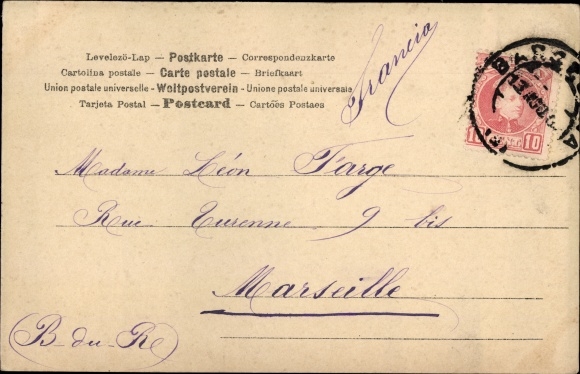 Levelezö-Lap — Postkarte — Correspondenzkarte
Cartolina postale — Carte postale — Briefkaart
Union postale universelle — Weltpostverein — Unione postale universale
Tarjeta Postal — Postcard — Cartões Postaes
Francia
10
Madame Léon Farge
Rue Turenne 9 bis
Marseille
(B-du-R)